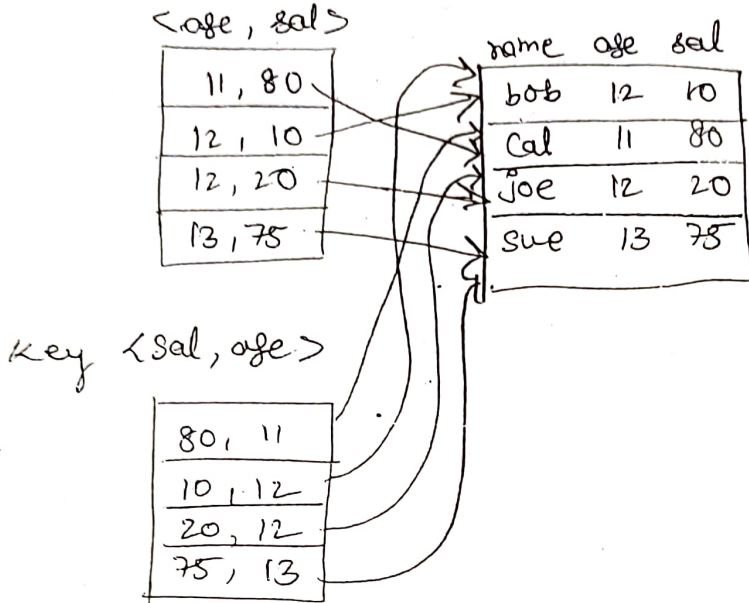 <age, sal>
11, 80
12, 10
12, 20
13, 75
name age sal
bob 12 10
Cal 11 80
joe 12 20
sue 13 75
Key <sal, age>
80, 11
10, 12
20, 12
75, 13